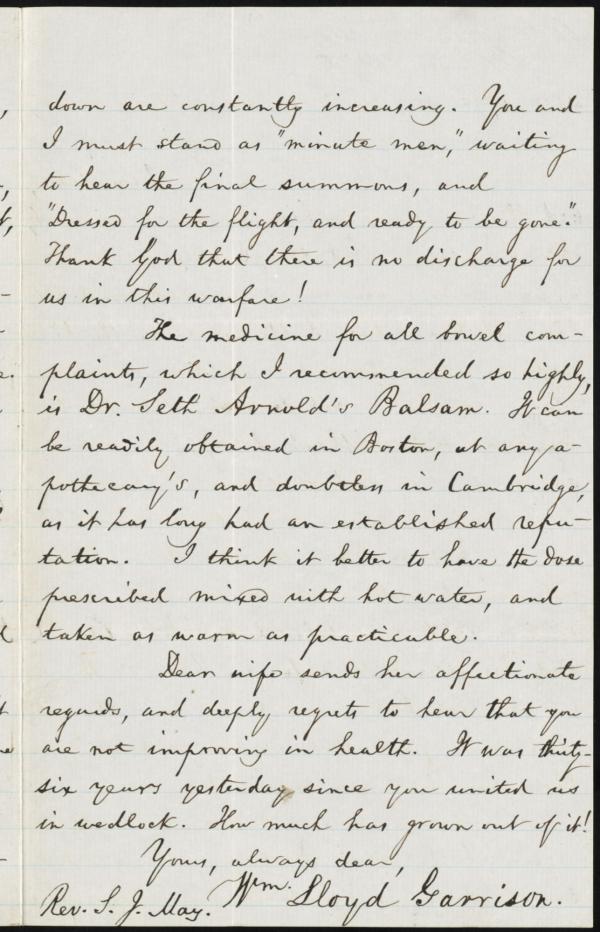 down are constantly increasing. You and
I must stand as "minute men," waiting
to hear the final summons, and
"Dressed for the flight, and ready to be gone."
Thank God that there is no discharge for
us in this warfare!
The medicine for all bowel com-
plaints, which I recommended so highly,
is Dr. Seth Arnold's Balsam. It can
be readily obtained in Boston, at any a-
pothecary's, and doubtless in Cambridge,
as it has long had an established repu-
tation. I think it better to have the dose
prescribed mixed with hot water, and
taken as warm as practicable.
Dear wife sends her affectionate
regards, and deeply regrets to hear that you
are not improving in health. It was thirty-
six years yesterday since you united us
in wedlock. How much has grown out of it!
Yours, always dear,
Wm. Lloyd Garrison.
Rev. S. J. May.